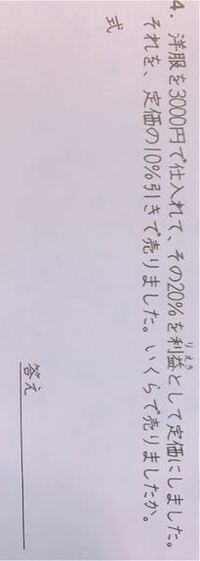 4. 洋服を3000円で仕入れて、その20%を利益として定価にしました。
りえき
それを、定価の10%引きで売りました。いくらで売りましたか。
式
答え